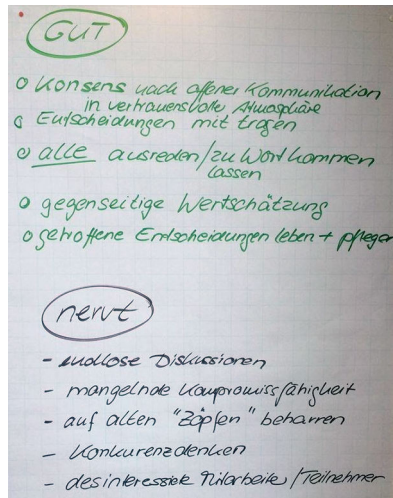 GUT
o Konsens nach offener Kommunikation
in vertrauensvolle Atmosphäre
o Entscheidungen mit tragen
o alle ausreden/zu Wort kommen
lassen
o gegenseitige Wertschätzung
o getroffene Entscheidungen leben + pflegen
nervt
- endlose Diskussionen
- mangelnde Kompromissfähigkeit
- auf alten "Zöpfen" beharren
- Konkurenzdenken
- desinteressierte Mitarbeiter/Teilnehmer